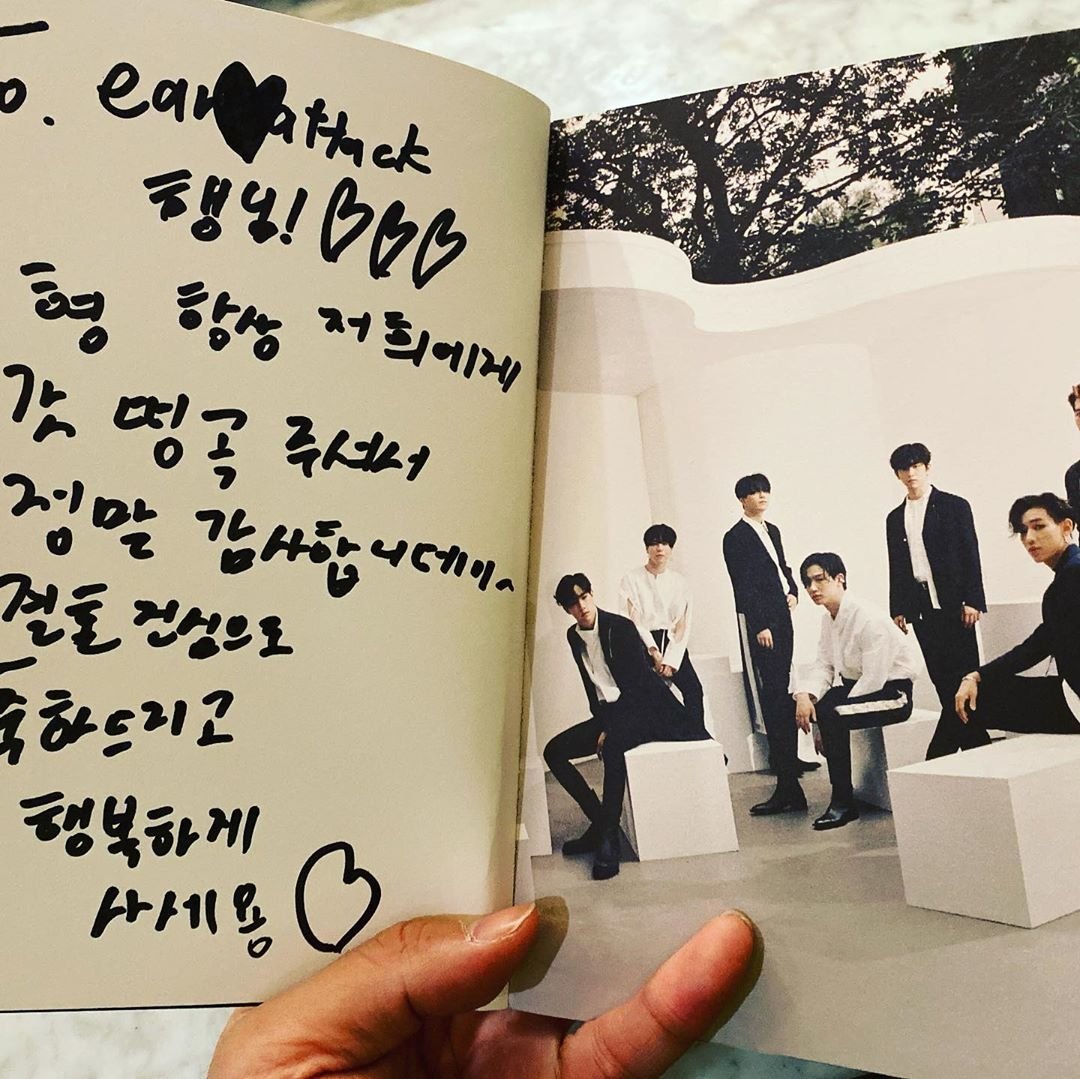 To. ear♥attack
행님! ♡♡♡
형 항상 저희에게
갓 띵곡 주셔서
정말 감사합니데이^
결혼 진심으로
축하드리고
행복하게
사세용 ♡